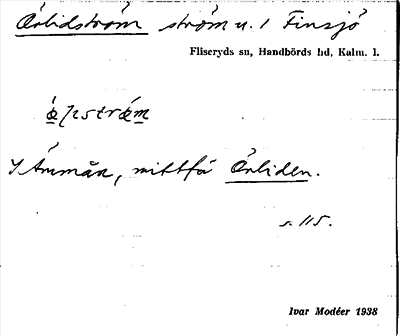 Örlidström ström u. 1 Finsjö
Fliseryds sn, Handbörds hd, Kalm. l.
I Ämmån, mittför Örliden.
s. 115.
Ivar Modéer 1938